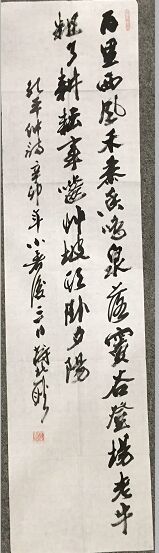 百里西风禾黍香鸣泉落窦谷登场老牛
粗了耕耘事啮草坡头卧夕阳
孔平仲诗辛卯年小暑后二日